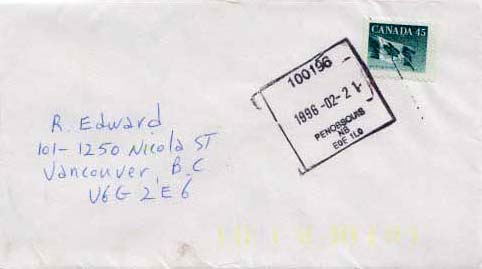 CANADA 45
100196
1996-02-21
PENOBSQUIS
NB
E0E 1L0
R. Edward
101-1250 Nicola ST
Vancouver, B.C
V6G 2E6